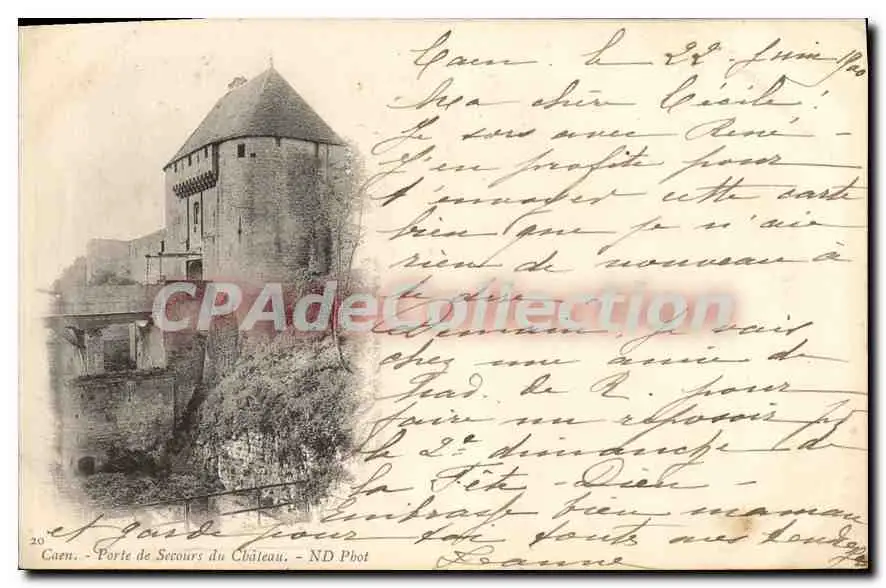 Caen. le 22 Juin 1900
Ma chère Cécile!
Je sors avec René -
J'en profite pour
t'envoyer cette carte
bien que je n'aie
rien de nouveau à
te dire.
Demain, je vais
chez une amie de
Mad. de R. pour
faire un reposoir pr
le 2e dimanche de
la Fête-Dieu -
Embrasse bien maman
et garde pour toi toute mes
CPADeCollection.com
20 Caen. - Porte de Secours du Château. - ND Phot